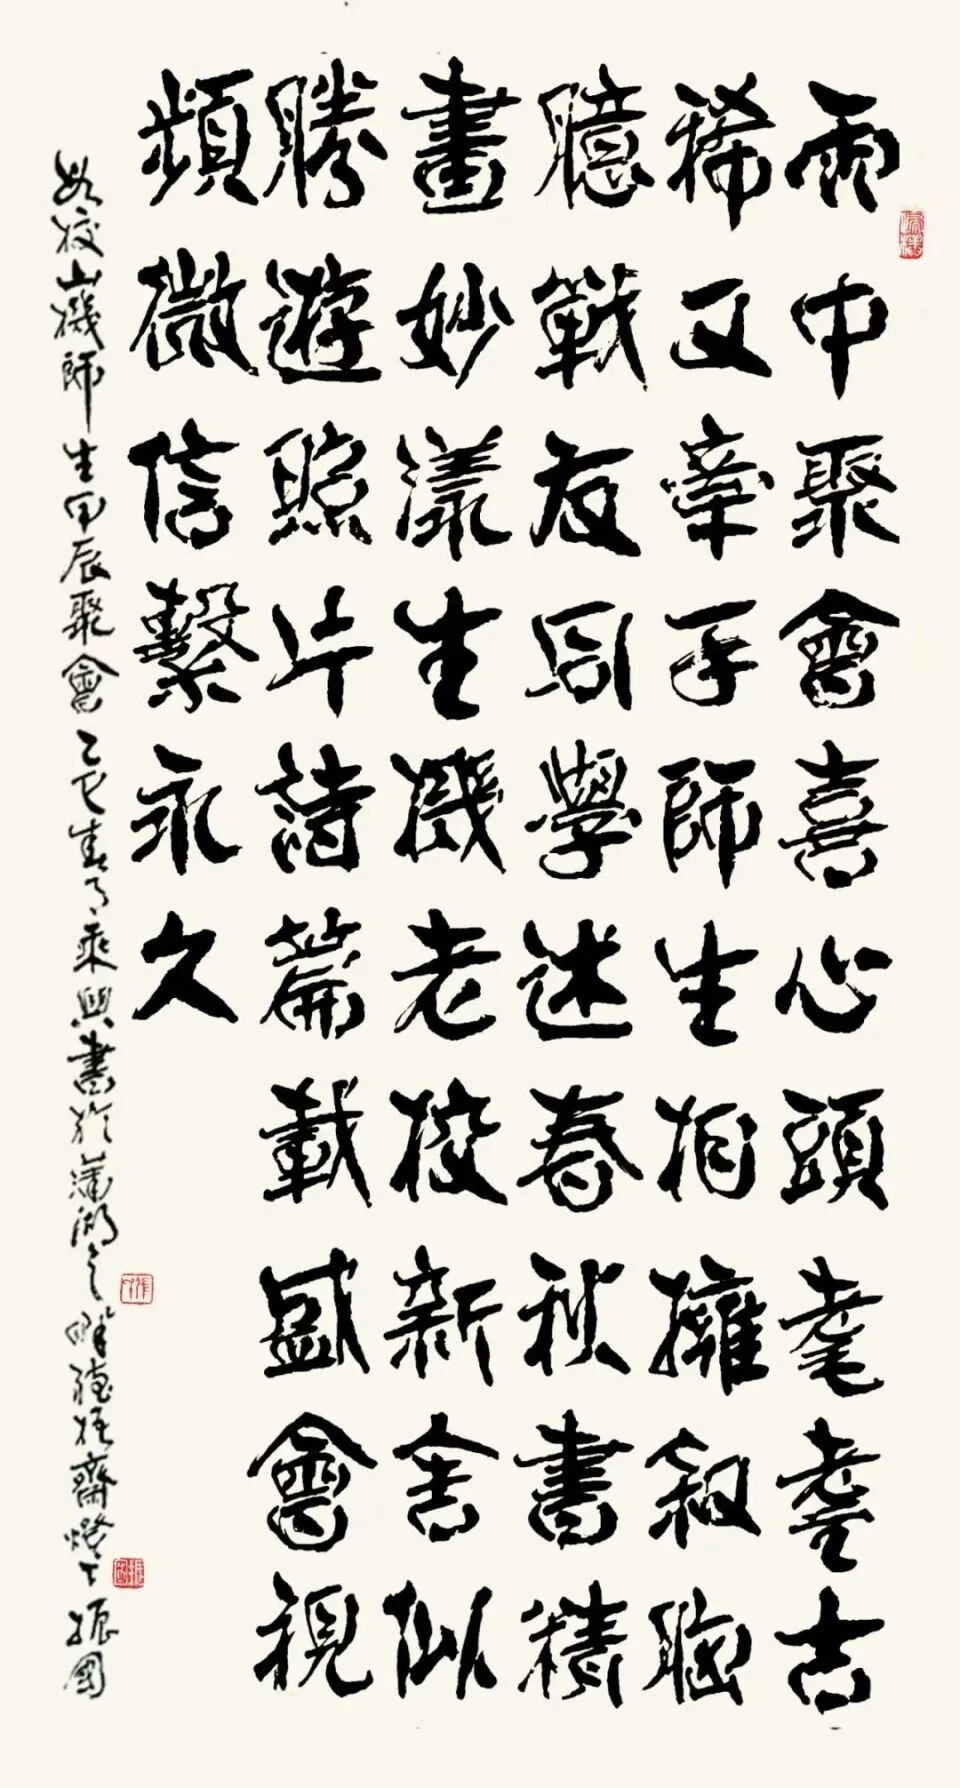 雨中聚會喜心頭耄耋古
稀又牽手師生相擁敘胸
臆戰友同學迷春秋書精
畫妙漾生機老校新舍似
勝遊照片詩篇載盛會視
頻微信繫永久
山機師生甲辰聚會乙巳春乘興書於蒲湖之齋燈下振國